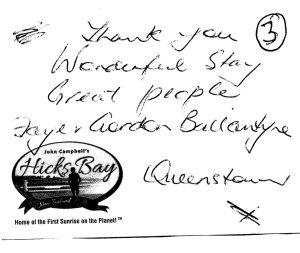 3
Thank you
Wonderful Stay
Great people
Faye & Gordon Ballantyne
Queenstown
John Campbell's
Hicks Bay
New Zealand
Home of the First Sunrise on the Planet! ™